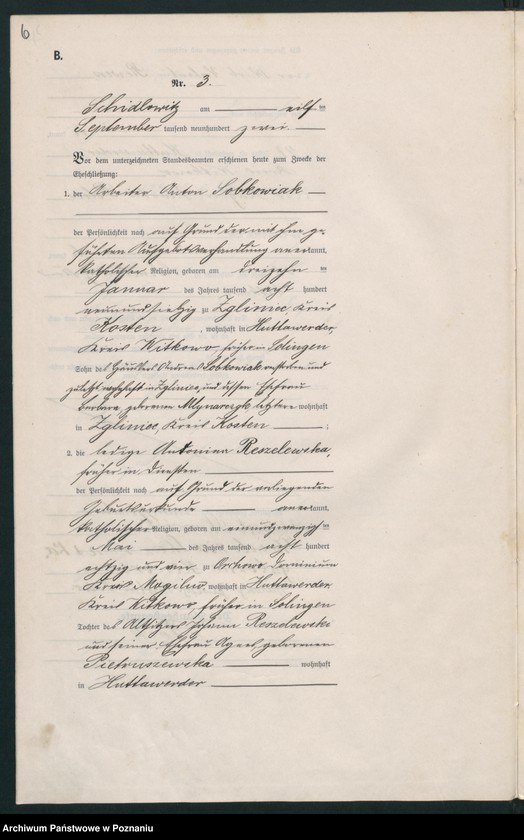 6
B.
Nr. 3.
Schidlowitz am eilf ten
September tausend neunhundert zwei.
Vor dem unterzeichneten Standesbeamten erschienen heute zum Zwecke der
Eheschließung:
1. der Arbeiter Anton Sobkowiak
der Persönlichkeit nach auf Grund der mit ihm ge-
führten Aufgebotsverhandlung anerkannt,
katholischer Religion, geboren am dreizehn ten
Januar des Jahres tausend acht hundert
neunundsiebzig zu Zgliniec, Kreis
Kosten, wohnhaft in Huttawerder,
Kreis Witkowo, früher in Solingen
Sohn des Häuslers Andreas Sobkowiak verstorben und
zuletzt wohnhaft in Zgliniec, und dessen Ehefrau
Barbara, geborenen Mlynarczyk letztere wohnhaft
in Zgliniec, Kreis Kosten ;
2. die ledige Antonina Reszelewska,
früher in Diensten
der Persönlichkeit nach auf Grund der vorliegenden
Geburtsurkunde anerkannt,
katholischer Religion, geboren am einundzwanzigsten
Mai des Jahres tausend acht hundert
achtzig und vier zu Orchowo Dominium
Kreis Mogilno, wohnhaft in Huttawerder,
Kreis Witkowo, früher in Solingen
Tochter des Altsitzers Johann Reszelewski
und seiner Ehefrau Agnes, geborenen
Pietruszewska wohnhaft
in Huttawerder
Archiwum Państwowe w Poznaniu